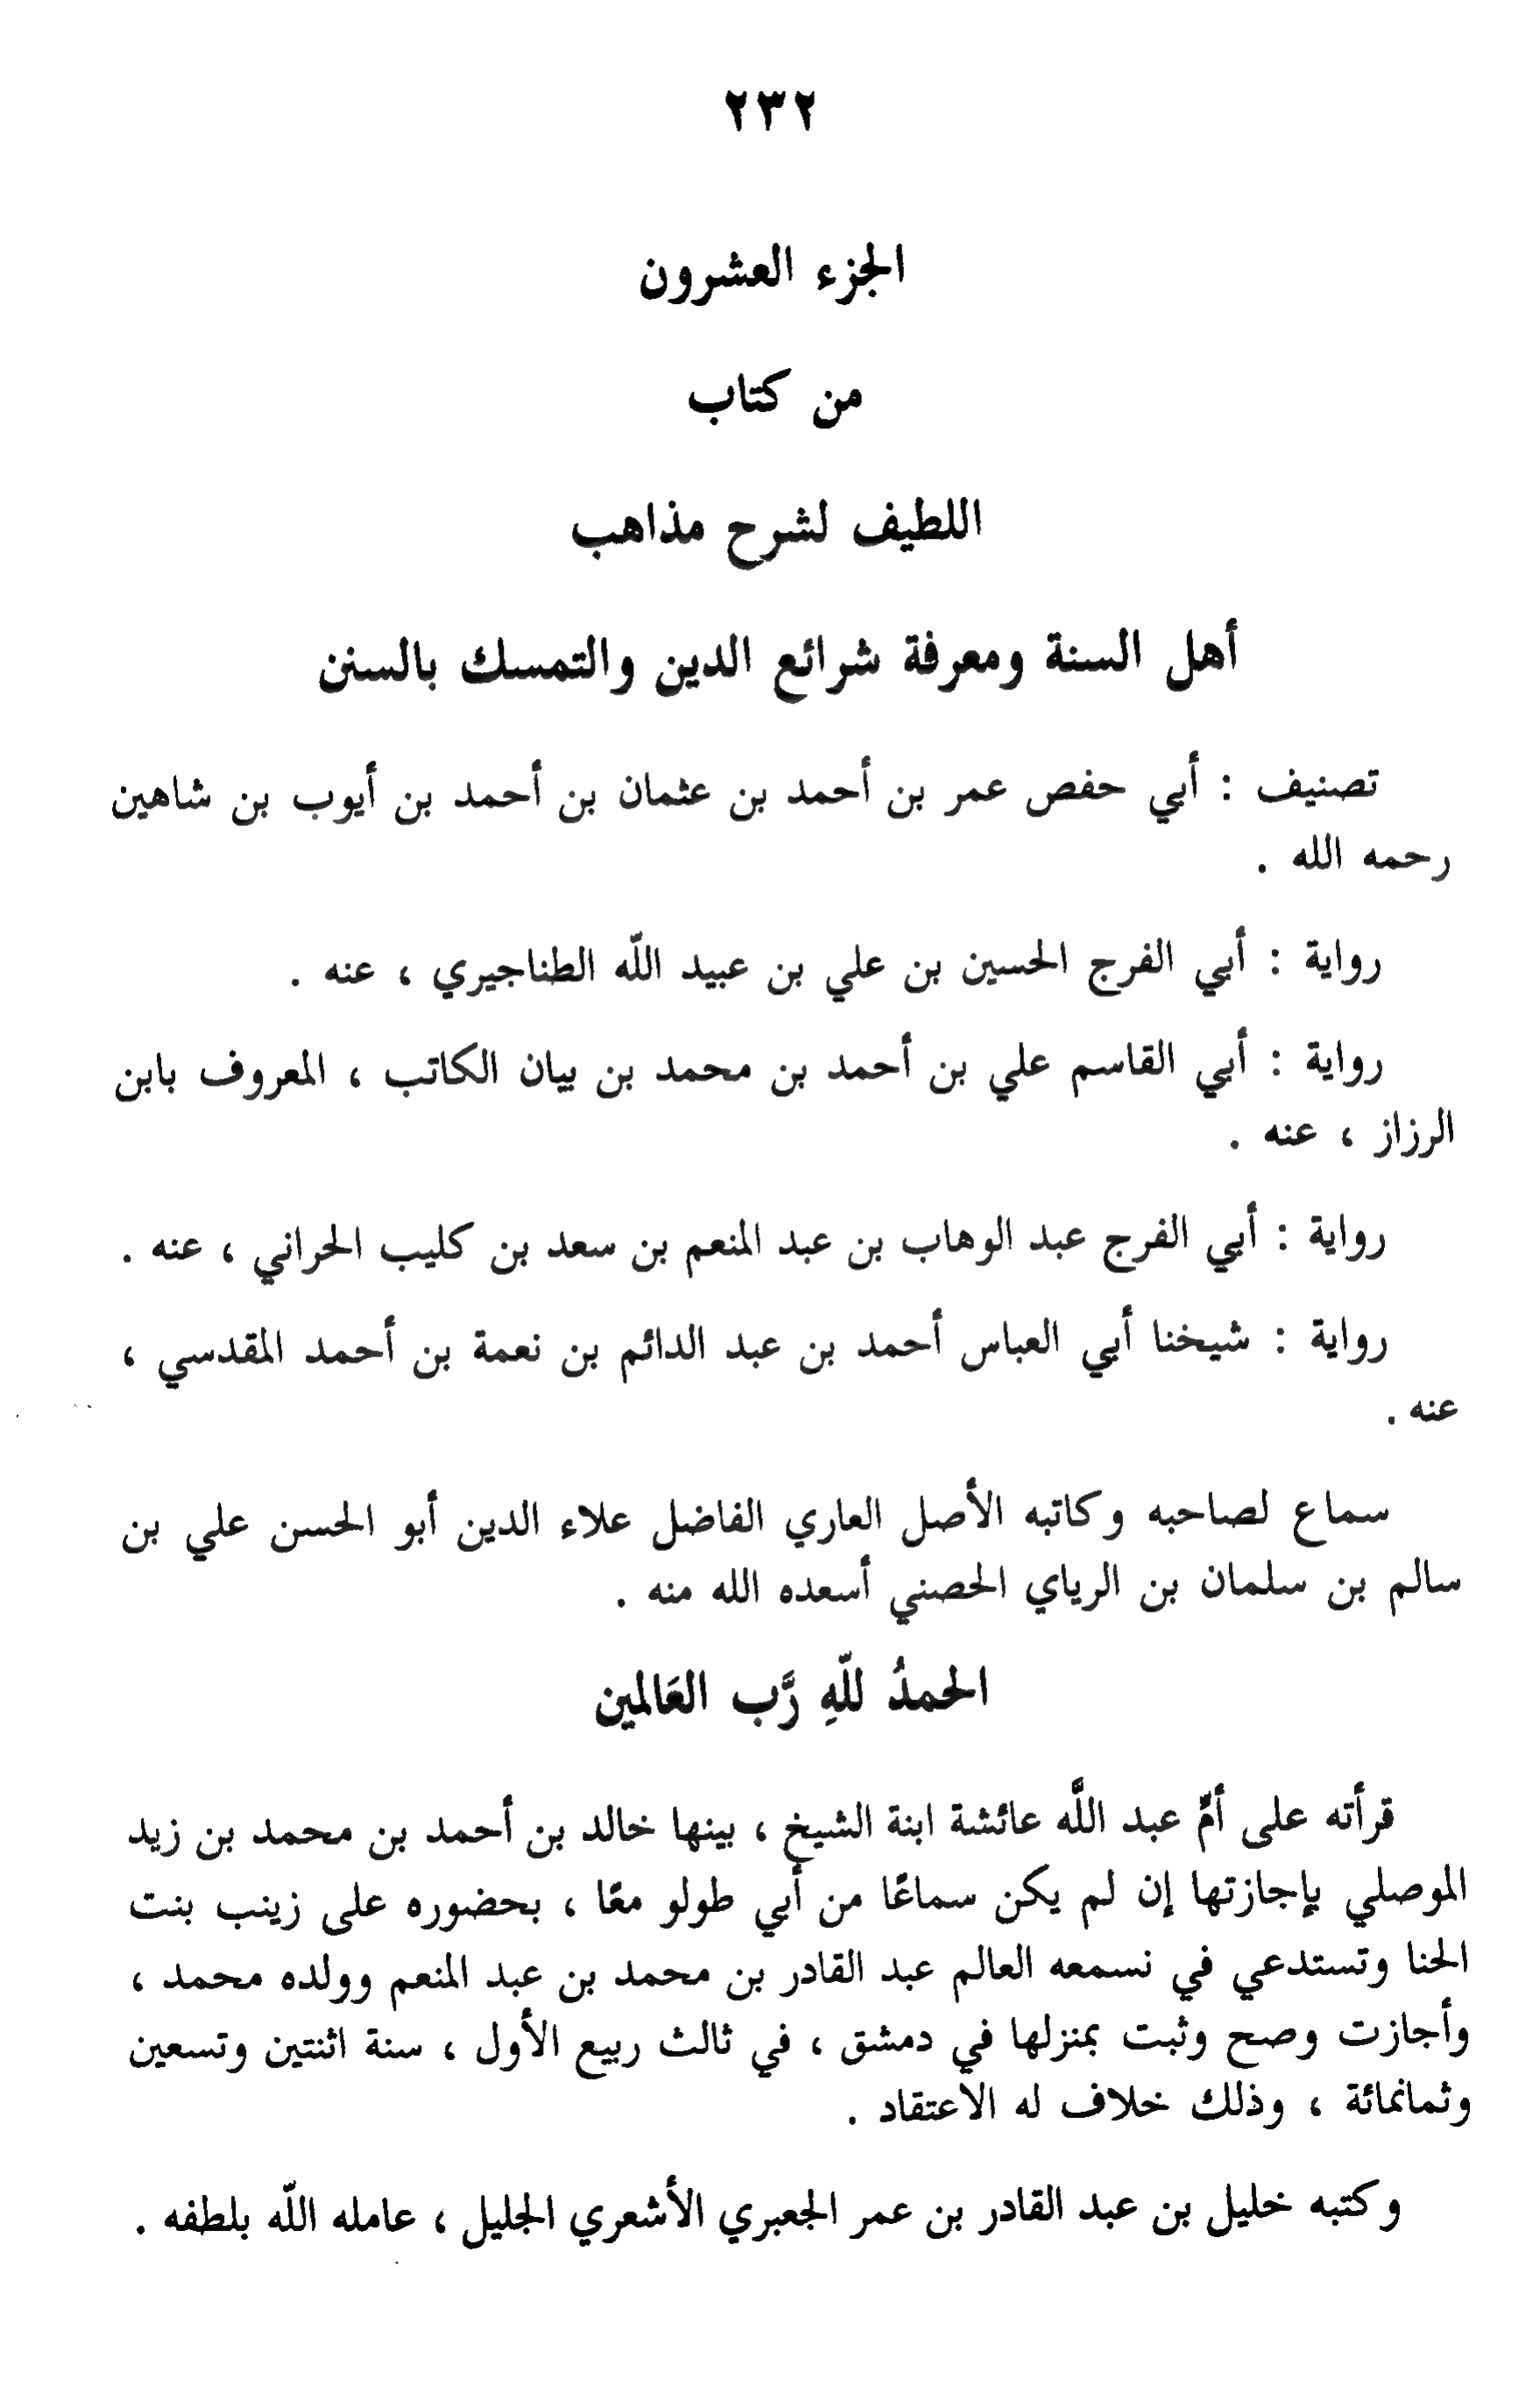 ٢٣٢
الجزء العشرون
من كتاب
اللطيف لشرح مذاهب
أهل السنة ومعرفة شرائع الدين والتمسك بالسنن
تصنيف : أبي حفص عمر بن أحمد بن عثمان بن أحمد بن أيوب بن شاهين
رحمه الله .
رواية : أبي الفرج الحسين بن علي بن عبيد اللّه الطناجيري ، عنه .
رواية : أبي القاسم علي بن أحمد بن محمد بن بيان الكاتب ، المعروف بابن
الرزاز ، عنه .
رواية : أبي الفرج عبد الوهاب بن عبد المنعم بن سعد بن كليب الحراني ، عنه .
رواية : شيخنا أبي العباس أحمد بن عبد الدائم بن نعمة بن أحمد المقدسي ،
عنه .
سماع لصاحبه وكاتبه الأصل العاري الفاضل علاء الدين أبو الحسن علي بن
سالم بن سلمان بن الرياي الحصني أسعده الله منه .
الحمدُ للّهِ رَّب العَالمين
قرأته على أمِّ عبد اللَّه عائشة ابنة الشيخ ، بينها خالد بن أحمد بن محمد بن زيد
الموصلي بإجازتها إن لم يكن سماعًا من أبي طولو معًا ، بحضوره على زينب بنت
الحنا وتستدعي في نسمعه العالم عبد القادر بن محمد بن عبد المنعم وولده محمد ،
وأجازت وصح وثبت بمنزلها في دمشق ، في ثالث ربيع الأول ، سنة اثنتين وتسعين
وثمانمائة ، وذلك خلاف له الاعتقاد .
وكتبه خليل بن عبد القادر بن عمر الجعبري الأشعري الجليل ، عامله اللّه بلطفه .